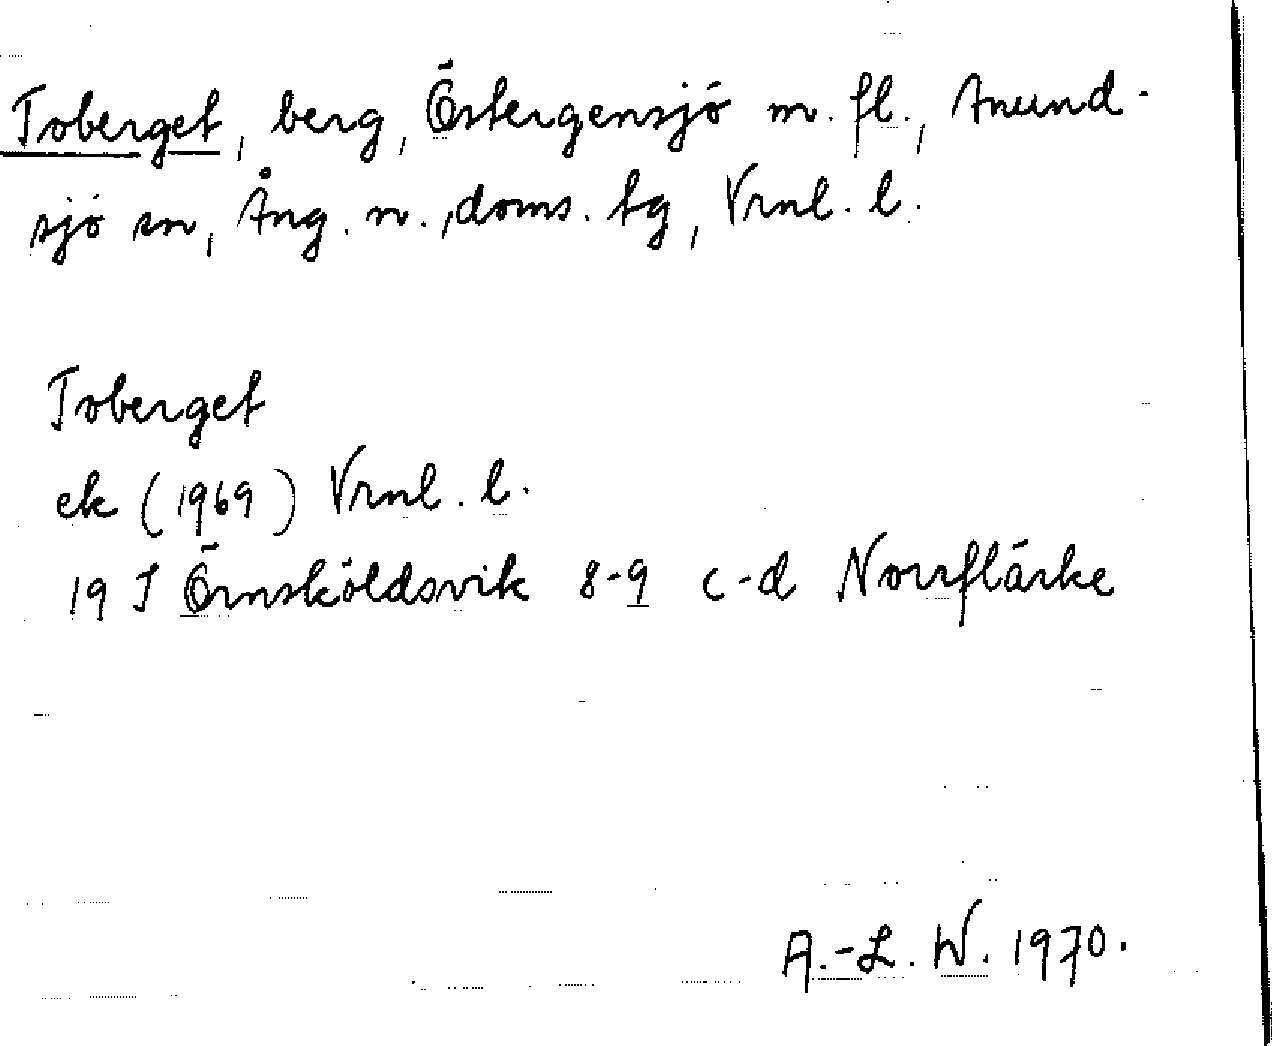 Toberget, berg, Östergensjö m. fl., Anund-
sjö sn, Ång. n. doms. tg, Vrnl. l.
Toberget
ek (1969) Vrnl. l.
19 J Örnsköldsvik 8-9 c-d Norrflärke
A.-L. W. 1970.